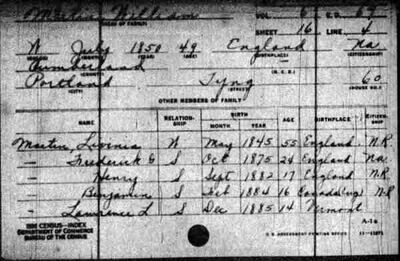 Martin William VOL. 6 E.D. 65
(HEAD OF FAMILY)
SHEET 16 LINE 4
W July 1850 49 England Na
(COLOR) (MONTH) (YEAR) (AGE) (BIRTHPLACE) (CITIZENSHIP)
Cumberland
(COUNTY) (M.C.D.)
Portland Tyng 60
(CITY) (STREET) (HOUSE NO.)
OTHER MEMBERS OF FAMILY
NAME RELATION-SHIP BIRTH MONTH YEAR AGE BIRTHPLACE CITIZEN-SHIP
Martin, Lovinia W May 1845 55 England N.R
— Frederick G S Oct 1875 24 England Na.
— Henry S Sept 1882 17 England N.R
— Benjamin S Feb 1884 16 Canada Eng N.R
— Lawrence L S Dec 1885 14 Vermont
1900 CENSUS—INDEX A-1a
DEPARTMENT OF COMMERCE
BUREAU OF THE CENSUS U.S. GOVERNMENT PRINTING OFFICE